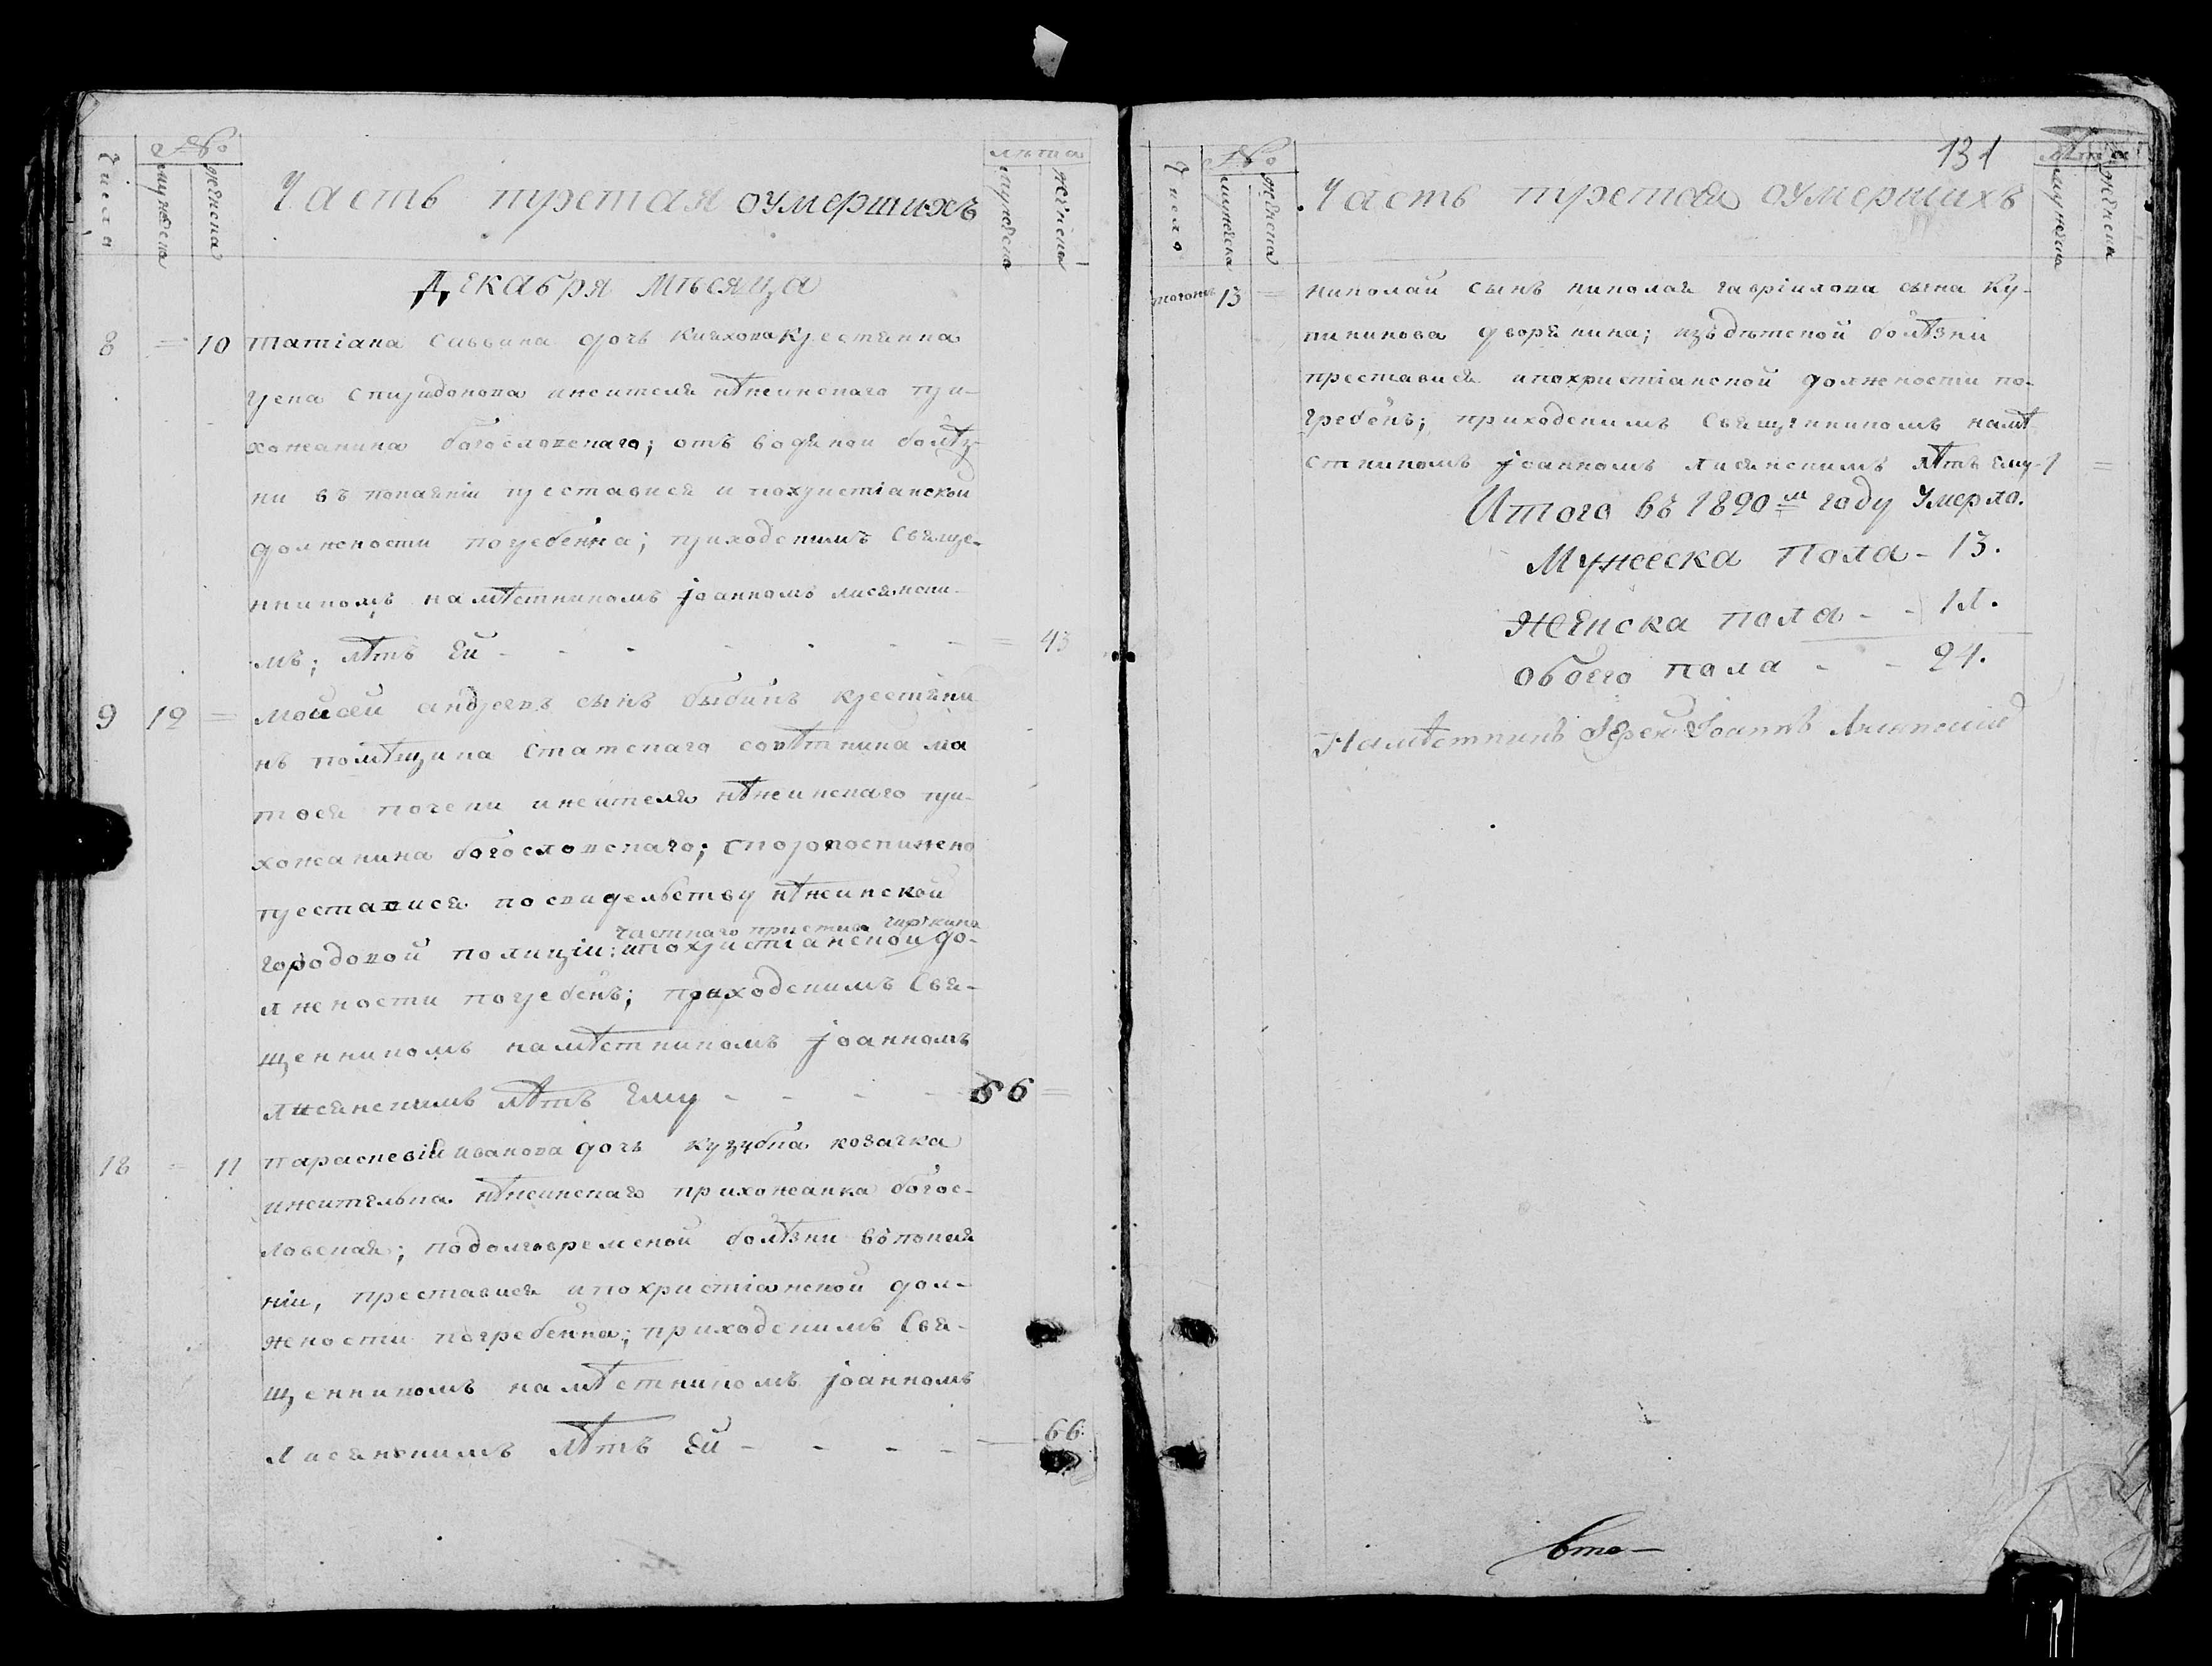 Числа
№
мужеска
женска
Часть третая оумершихъ
лѣта
мужеска
женска
Декабря мѣсяца
8 = 10 татіана саввина дочъ крестянна
спиридонова жителя нѣжинскаго при-
хожанина богословскаго; отъ водяной болѣз-
ни въ покаяніи преставися и похристіанской
должности погребенна; приходскимъ Свяще-
нникомъ намѣстникомъ јоанномъ лисянски-
мъ; лѣтъ ей - - - - - = 43
9 12 = мойсей андреевъ сынъ быбикъ крестяни
нъ помѣщика статскаго совѣтника ма
жителя нѣжинскаго при-
хожанина богословскаго; скоропостижно
преставися посвидельству нѣжинской
частнаго пристава
городовой полиціи; ипохристіанской до-
лжности погребенъ; приходскимъ Свя-
щенникомъ намѣстникомъ јоанномъ
лисянскимъ лѣтъ ему - - - - 66 =
18 = 11 параскевія иванова дочъ кузубка козачка
жителька нѣжинскаго прихожанка богос-
ловская; подолговременой болѣзни вопокая
ніи, преставися ипохристіанской дол-
жности погребенна; приходскимъ Свя-
щенникомъ намѣстникомъ јоанномъ
Лисянскимъ лѣтъ ей - - - - — 66.
131
Число
№
мужеска
женска
Часть третая оумершихъ
лѣта
мужеска
женска
тогожъ 13 = николай сынъ николая гавріилова сына ку-
дворянина; издѣтской болѣзни
преставися ипохристіанской должности по-
гребенъ; приходскимъ Священникомъ намѣ
стникомъ јоанномъ лисянскимъ лѣтъ ему - 1 =
Итого въ 1820м году умерло.
Мужеска пола - 13.
Женска пола - - 11.
обоего пола - - 24.
Намѣстникъ Іерей Іоаннъ Лисянский